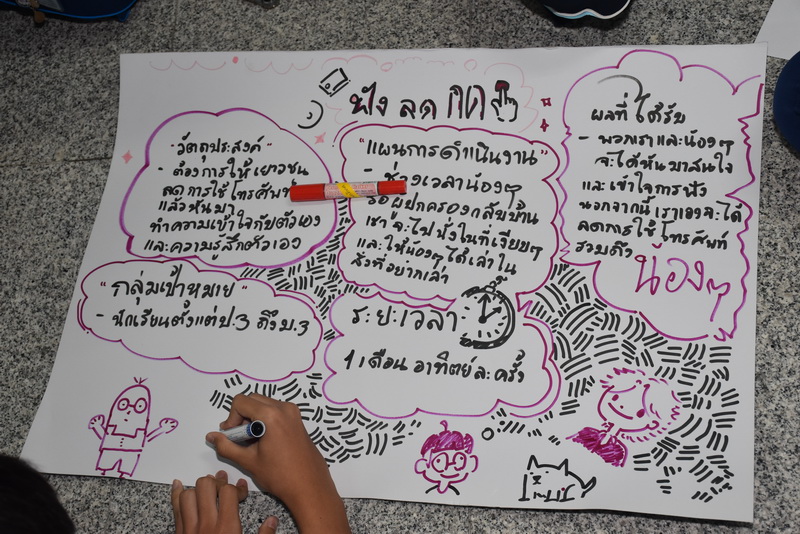 ฟัง ลด กด
"วัตถุประสงค์"
- ต้องการให้เยาวชน
ลดการใช้โทรศัพท์
แล้วหันมา
ทำความเข้าใจกับตัวเอง
และความรู้สึกตัวเอง
"กลุ่มเป้าหมาย"
- นักเรียนตั้งแต่ป.3 ถึงม.3
"แผนการดำเนินงาน"
- ช่วงเวลาน้องๆ
รอผู้ปกครองกลับบ้าน
เรา จะไปนั่งในที่เงียบๆ
และให้น้องๆ ได้เล่าใน
สิ่งที่อยากเล่า
ระยะเวลา
1 เดือน อาทิตย์ละครั้ง
ผลที่ได้รับ
- พวกเราและน้องๆ
จะได้หันมาสนใจ
และเข้าใจการฟัง
นอกจากนี้ เราเองจะได้
ลดการใช้โทรศัพท์
รวมถึง
น้องๆ